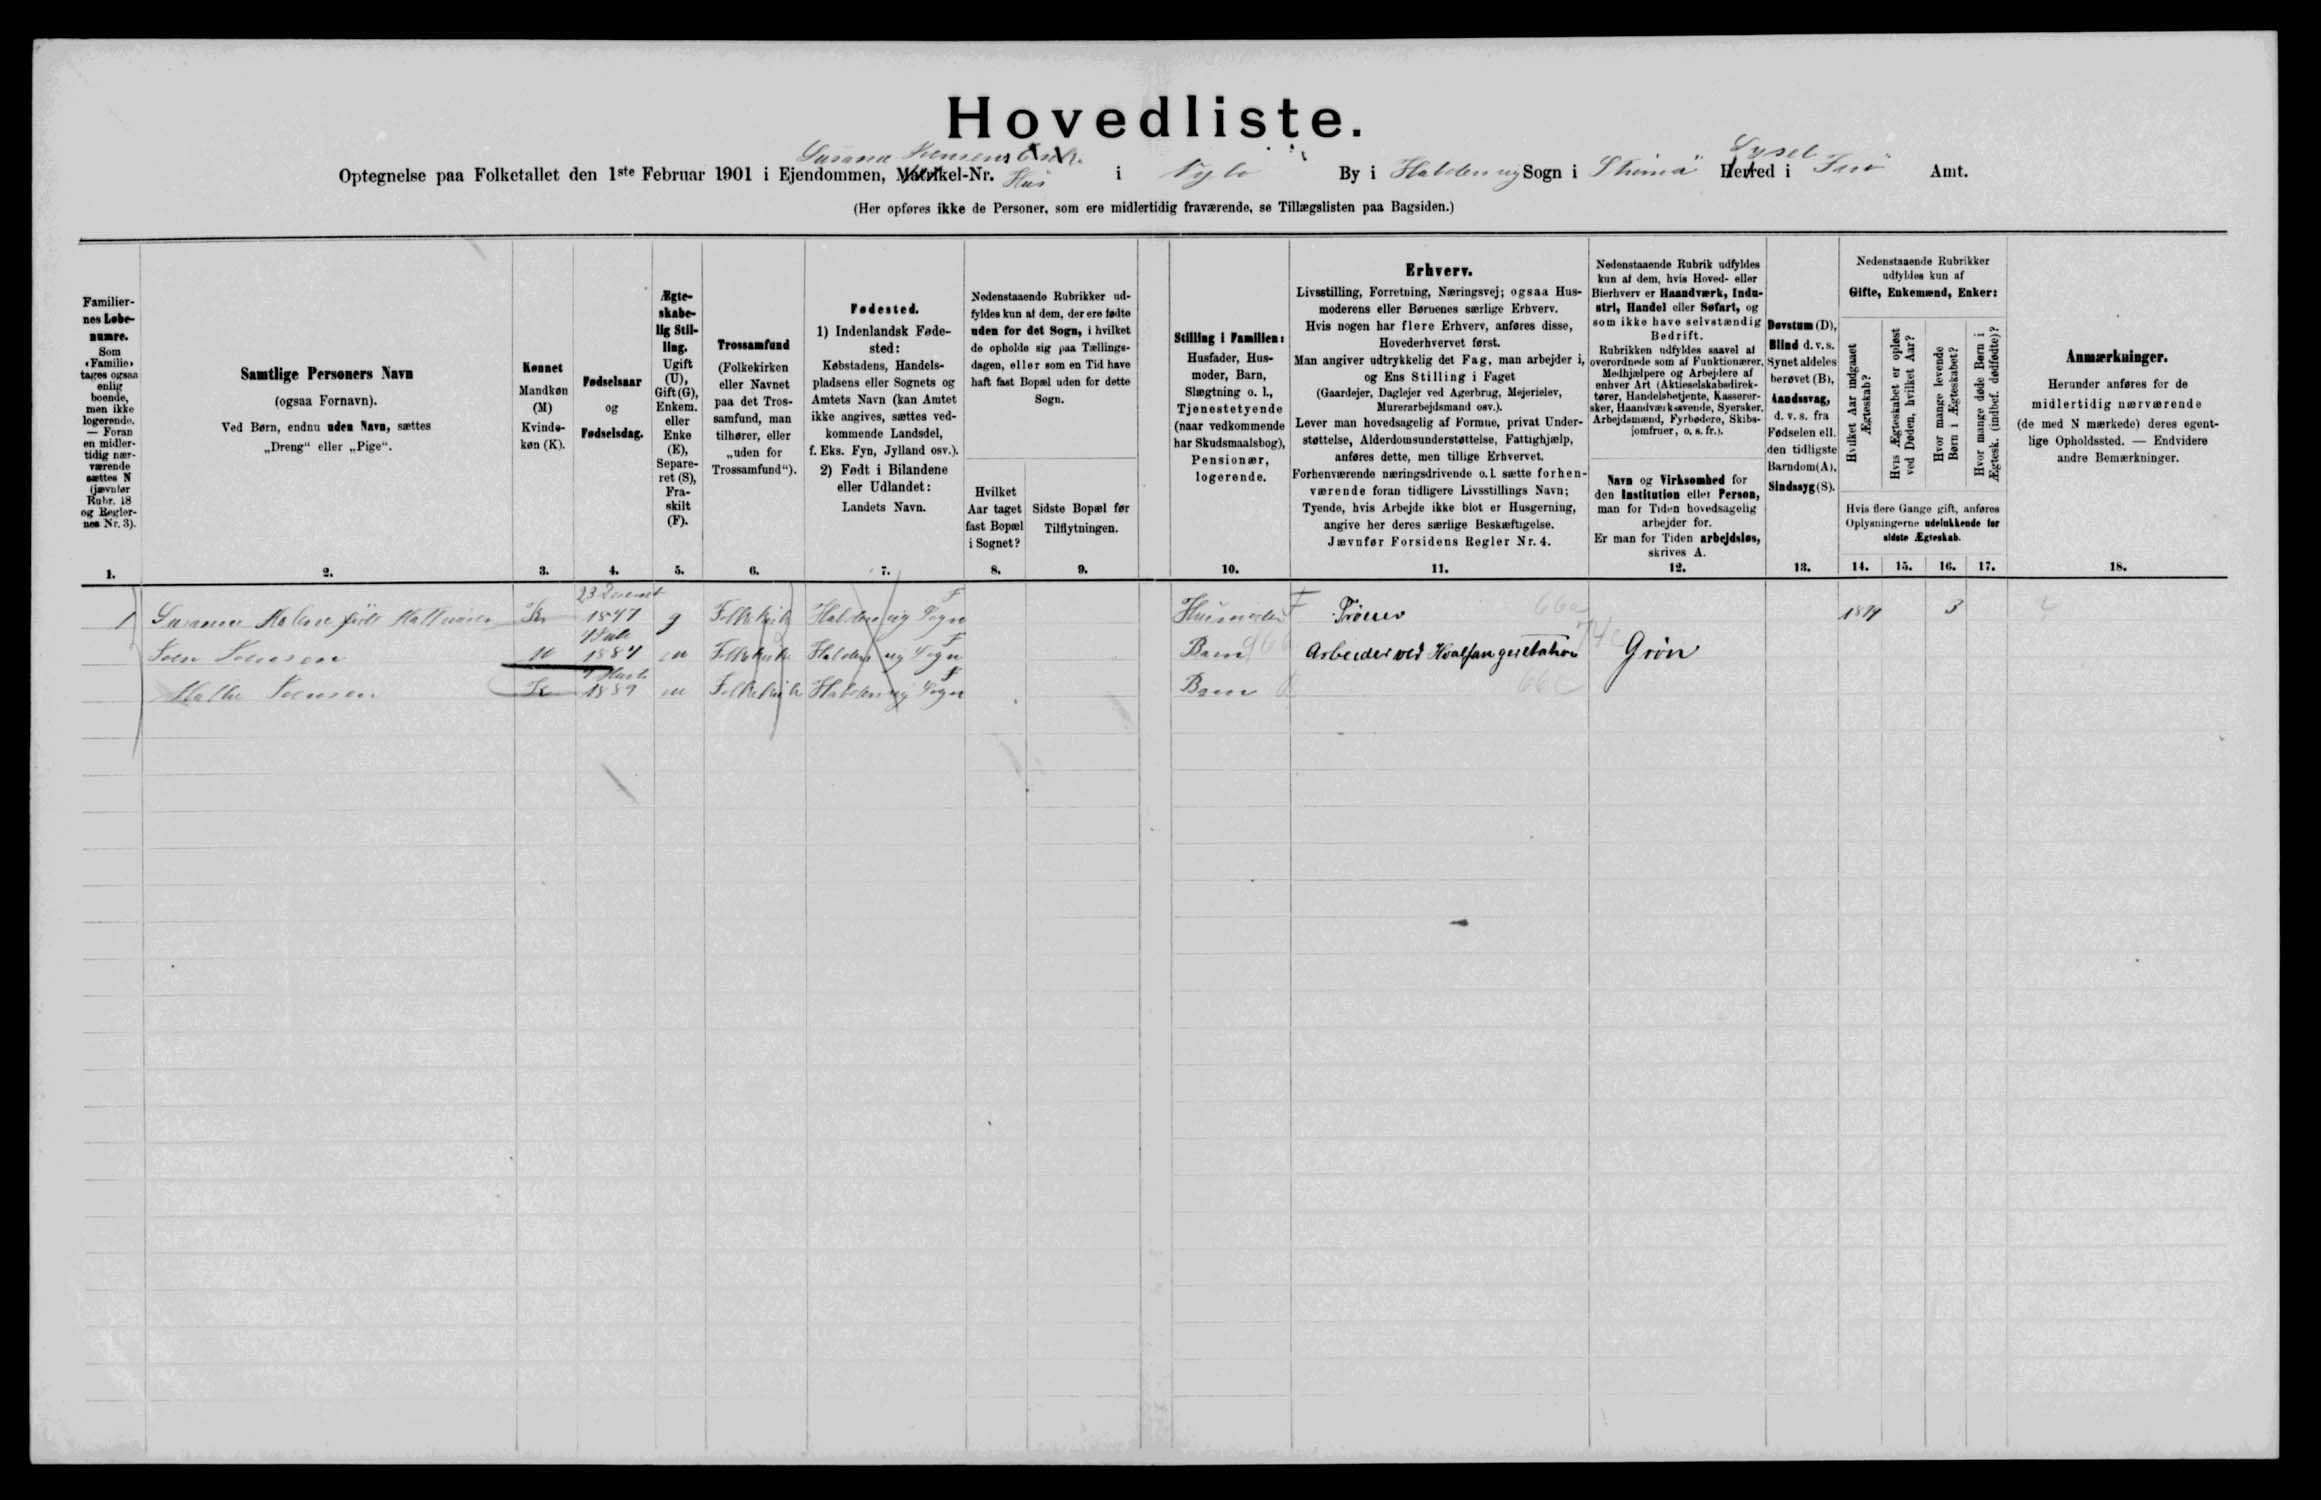 Hovedliste.
Optegnelse paa Folketallet den 1ste Februar 1901 i Ejendommen, Matrikel-Nr. Hus i By i Haldersvig Sogn i Strömö Herred Syssel i Färö Amt.
(Her opføres ikke de Personer, som ere midlertidig fraværende, se Tillægslisten paa Bagsiden.)
Familier-
nes Løbe-
numre.
Som
«Familie»
tages ogsaa
enlig
boende,
men ikke
logerende.
— Foran
en midler-
tidig nær-
værende
sættes N
(jævnfør
Rubr. 18
og Regler-
nes Nr. 3).
1.
Samtlige Personers Navn
(ogsaa Fornavn).
Ved Børn, endnu uden Navn, sættes
„Dreng“ eller „Pige“.
2.
Kønnet
Mandkøn
(M)
Kvinde-
køn (K).
3.
Fødselsaar
og
Fødselsdag.
4.
Ægte-
skabe-
lig Stil-
ling.
Ugift
(U),
Gift (G),
Enkem.
eller
Enke
(E),
Separe-
ret (S),
Fra-
skilt
(F).
5.
Trossamfund
(Folkekirken
eller Navnet
paa det Tros-
samfund, man
tilhører, eller
„uden for
Trossamfund“).
6.
Fødested.
1) Indenlandsk Føde-
sted:
Købstadens, Handels-
pladsens eller Sognets og
Amtets Navn (kan Amtet
ikke angives, sættes ved-
kommende Landsdel,
f. Eks. Fyn, Jylland osv.).
2) Født i Bilandene
eller Udlandet:
Landets Navn.
7.
Nedenstaaende Rubrikker ud-
fyldes kun af dem, der ere fødte
uden for det Sogn, i hvilket
de opholde sig paa Tællings-
dagen, eller som en Tid have
haft fast Bopæl uden for dette
Sogn.
Hvilket
Aar taget
fast Bopæl
i Sognet?
8.
Sidste Bopæl før
Tilflytningen.
9.
Stilling i Familien:
Husfader, Hus-
moder, Barn,
Slægtning o. l.,
Tjenestetyende
(naar vedkommende
har Skudsmaalsbog),
Pensionær,
logerende.
10.
Erhverv.
Livsstilling, Forretning, Næringsvej; ogsaa Hus-
moderens eller Børnenes særlige Erhverv.
Hvis nogen har flere Erhverv, anføres disse,
Hovederhvervet først.
Man angiver udtrykkelig det Fag, man arbejder i,
og Ens Stilling i Faget
(Gaardejer, Daglejer ved Agerbrug, Mejerielev,
Murerarbejdsmand osv.).
Lever man hovedsagelig af Formue, privat Under-
støttelse, Alderdomsunderstøttelse, Fattighjælp,
anføres dette, men tillige Erhvervet.
Forhenværende næringsdrivende o. l. sætte forhen-
værende foran tidligere Livsstillings Navn;
Tyende, hvis Arbejde ikke blot er Husgerning,
angive her deres særlige Beskæftigelse.
Jævnfør Forsidens Regler Nr. 4.
11.
Nedenstaaende Rubrik udfyldes
kun af dem, hvis Hoved- eller
Bierhverv er Haandværk, Indu-
stri, Handel eller Søfart, og
som ikke have selvstændig
Bedrift.
Rubrikken udfyldes saavel af
overordnede som af Funktionærer,
Medhjælpere og Arbejdere af
enhver Art (Aktieselskabsdirek-
tører, Handelsbetjente, Kasserer-
sker, Haandværkssvende, Syersker,
Arbejdsmænd, Fyrbødere, Skibs-
jomfruer, o. s. fr.).
Navn og Virksomhed for
den Institution eller Person,
man for Tiden hovedsagelig
arbejder for.
Er man for Tiden arbejdsløs,
skrives A.
12.
Døvstum (D),
Blind d. v. s.
Synet aldeles
berøvet (B),
Aandssvag,
d. v. s. fra
Fødselen ell.
den tidligste
Barndom (A),
Sindssyg (S).
13.
Nedenstaaende Rubrikker
udfyldes kun af
Gifte, Enkemænd, Enker:
Hvilket Aar indgaaet
Ægteskab?
Hvis Ægteskabet er opløst
ved Døden, hvilket Aar?
Hvor mange levende
Børn i Ægteskabet?
Hvor mange døde Børn i
Ægtesk. (indbef. dødfødte)?
Hvis flere Gange gift, anføres
Oplysningerne udelukkende for
sidste Ægteskab.
14. 15. 16. 17.
Anmærkninger.
Herunder anføres for de
midlertidig nærværende
(de med N mærkede) deres egent-
lige Opholdssted. — Endvidere
andre Bemærkninger.
18.
1 født K 1847 g Folkekirk Haldersvig Sogn Husmoder F 66a 3
M 1884 u Folkekirk Haldersvig Sogn Barn Arbeider ved Hvalfangerstation Grön
K 1889 u Folkekirk Haldersvig Sogn Barn 66a